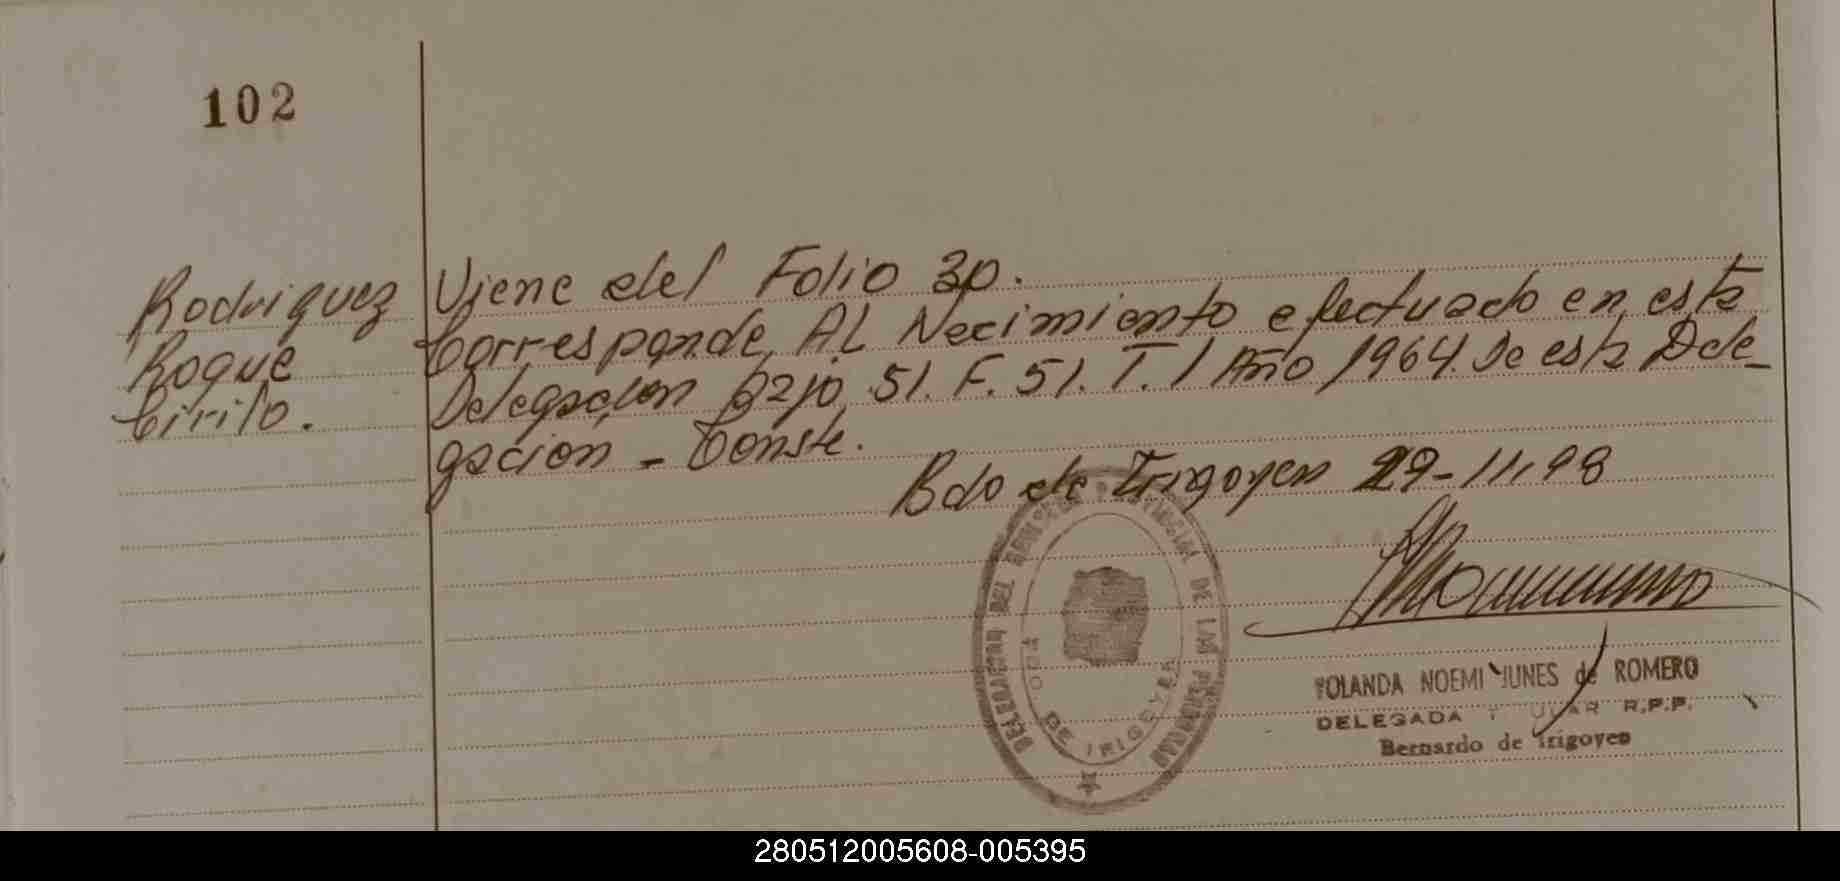 102
Rodriguez
Roque
Cirilo.
Viene del Folio 30.
Corresponde AL Nacimiento efectuado en esta
Delegacion bajo 51. F. 51. T. 1 Año 1964. de esta Dele-
gacion - Conste.
Bdo de Irigoyen 29-11-98
DELEGACION DEL REG PROVINCIAL DE LAS PERSONAS
BDO DE IRIGOYEN
YOLANDA NOEMI JUNES de ROMERO
DELEGADA R.P.P.
Bernardo de Irigoyen
280512005608-005395